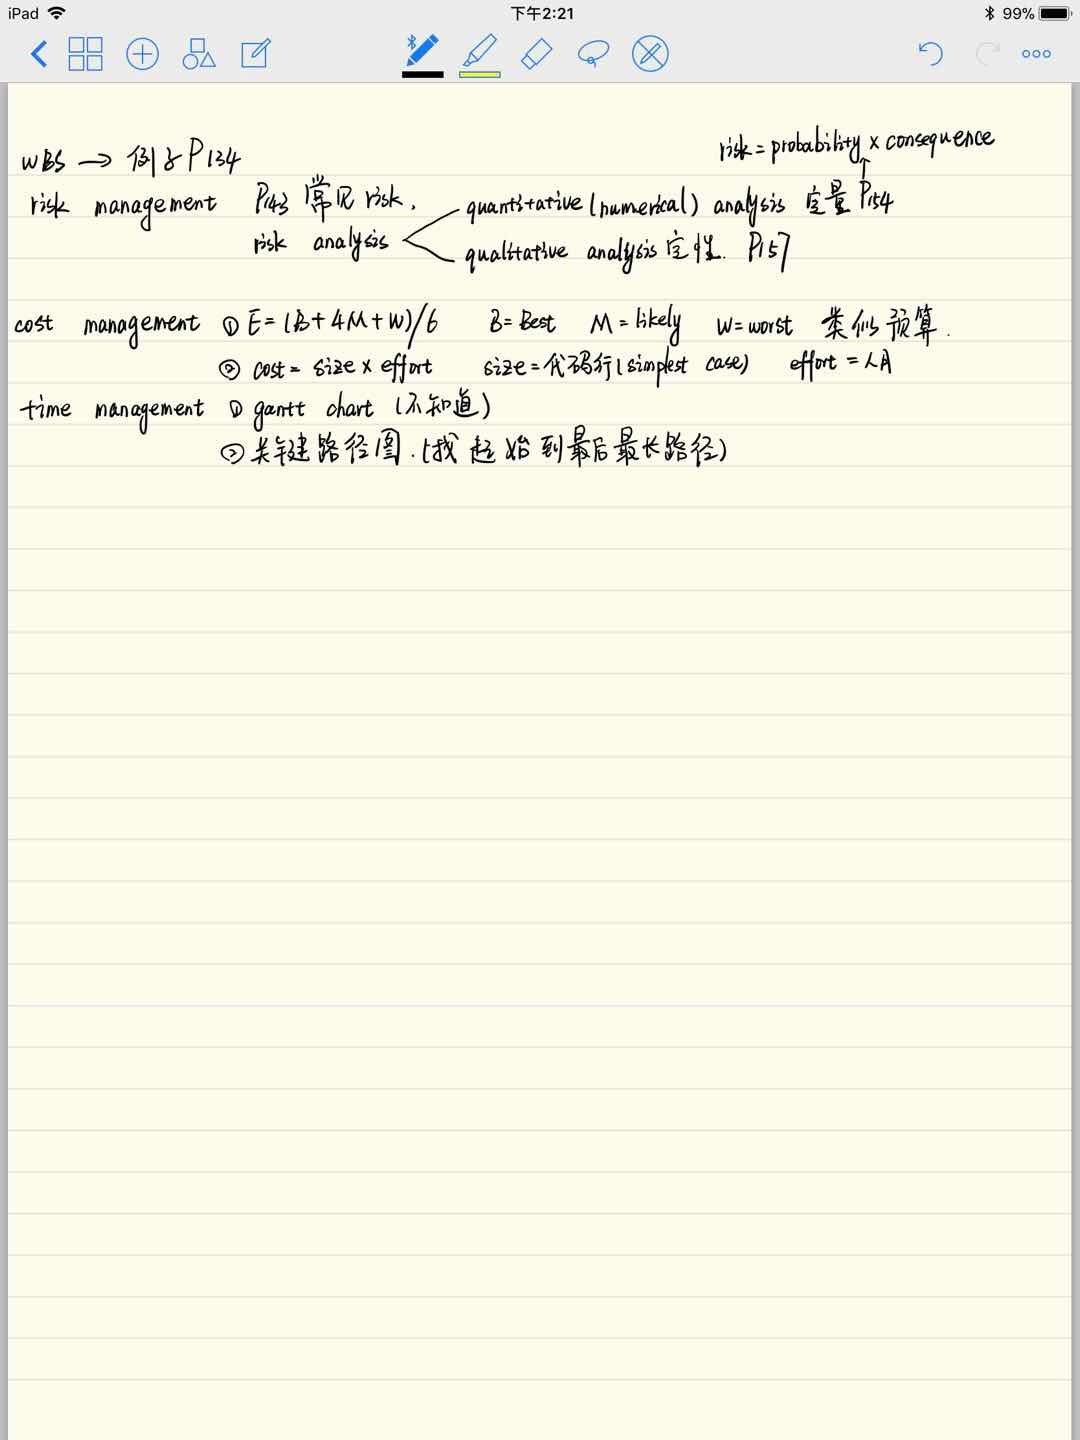 iPad 下午2:21 99%
risk = probability × consequence
WBS → 例子 P134
risk management P143 常见 risk. quantitative (numerical) analysis 定量 P154
risk analysis qualitative analysis 定性. P157
cost management ① E = (B + 4M + W)/6 B = Best M = likely W = worst 类似预算.
② cost = size × effort size = 代码行 (simplest case) effort = 人月
time management ① gantt chart (不知道)
② 关键路径图. (找起始到最后最长路径)